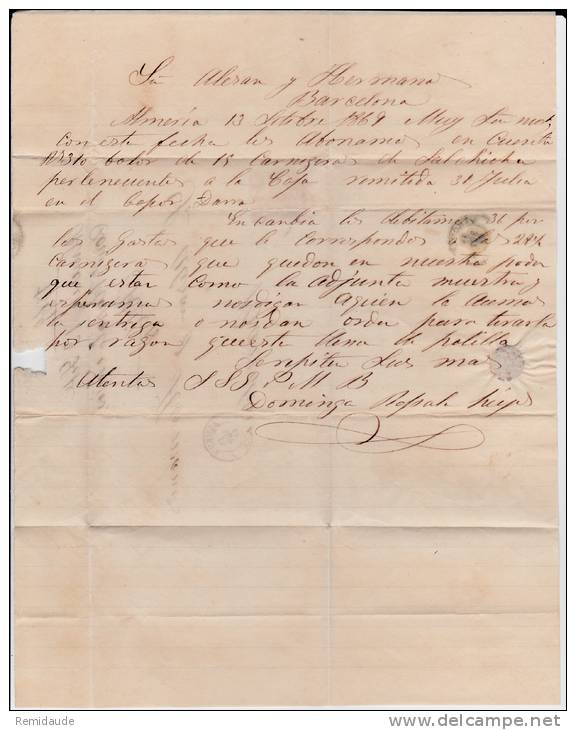 Sr Alesan y Hermano
Barcelona
Almería 13 Octbre 1869 Muy Srs nuest
con esta fecha les Abonamos en Cuenta
valor de 15 Carnizera de Salchicha
pertenecientes a la Caja remitida 31 Julio
en el bapor Darro
En canbio les debitamos 31 por
los Gastos que le Correspondos a las 284
Carnizera que quedon en nuestro poder
que estar como la adjunta muestra y
esperamos nosdigan aquien le
la entriga o nosdan orden para tirarla
por razon queesta llena de polilla
Serepiten Sus mas
Atentos S S Q B S M B
Dominga Hijos
Remidaude
delcampe.net